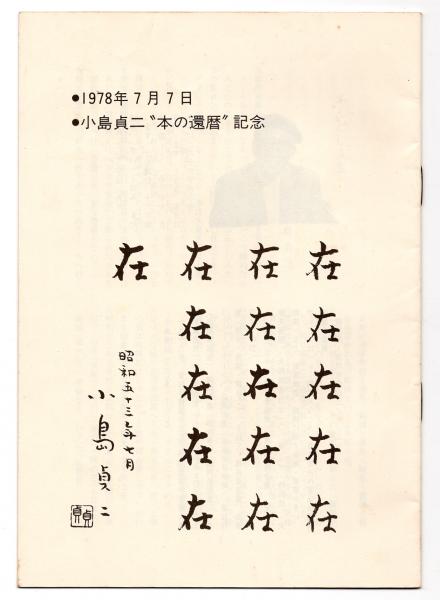 ●1978年7月7日
●小島貞二〝本の還暦〟記念
在在在在在
在在在在在
在在在在在
在
昭和五十三年七月
小島貞二